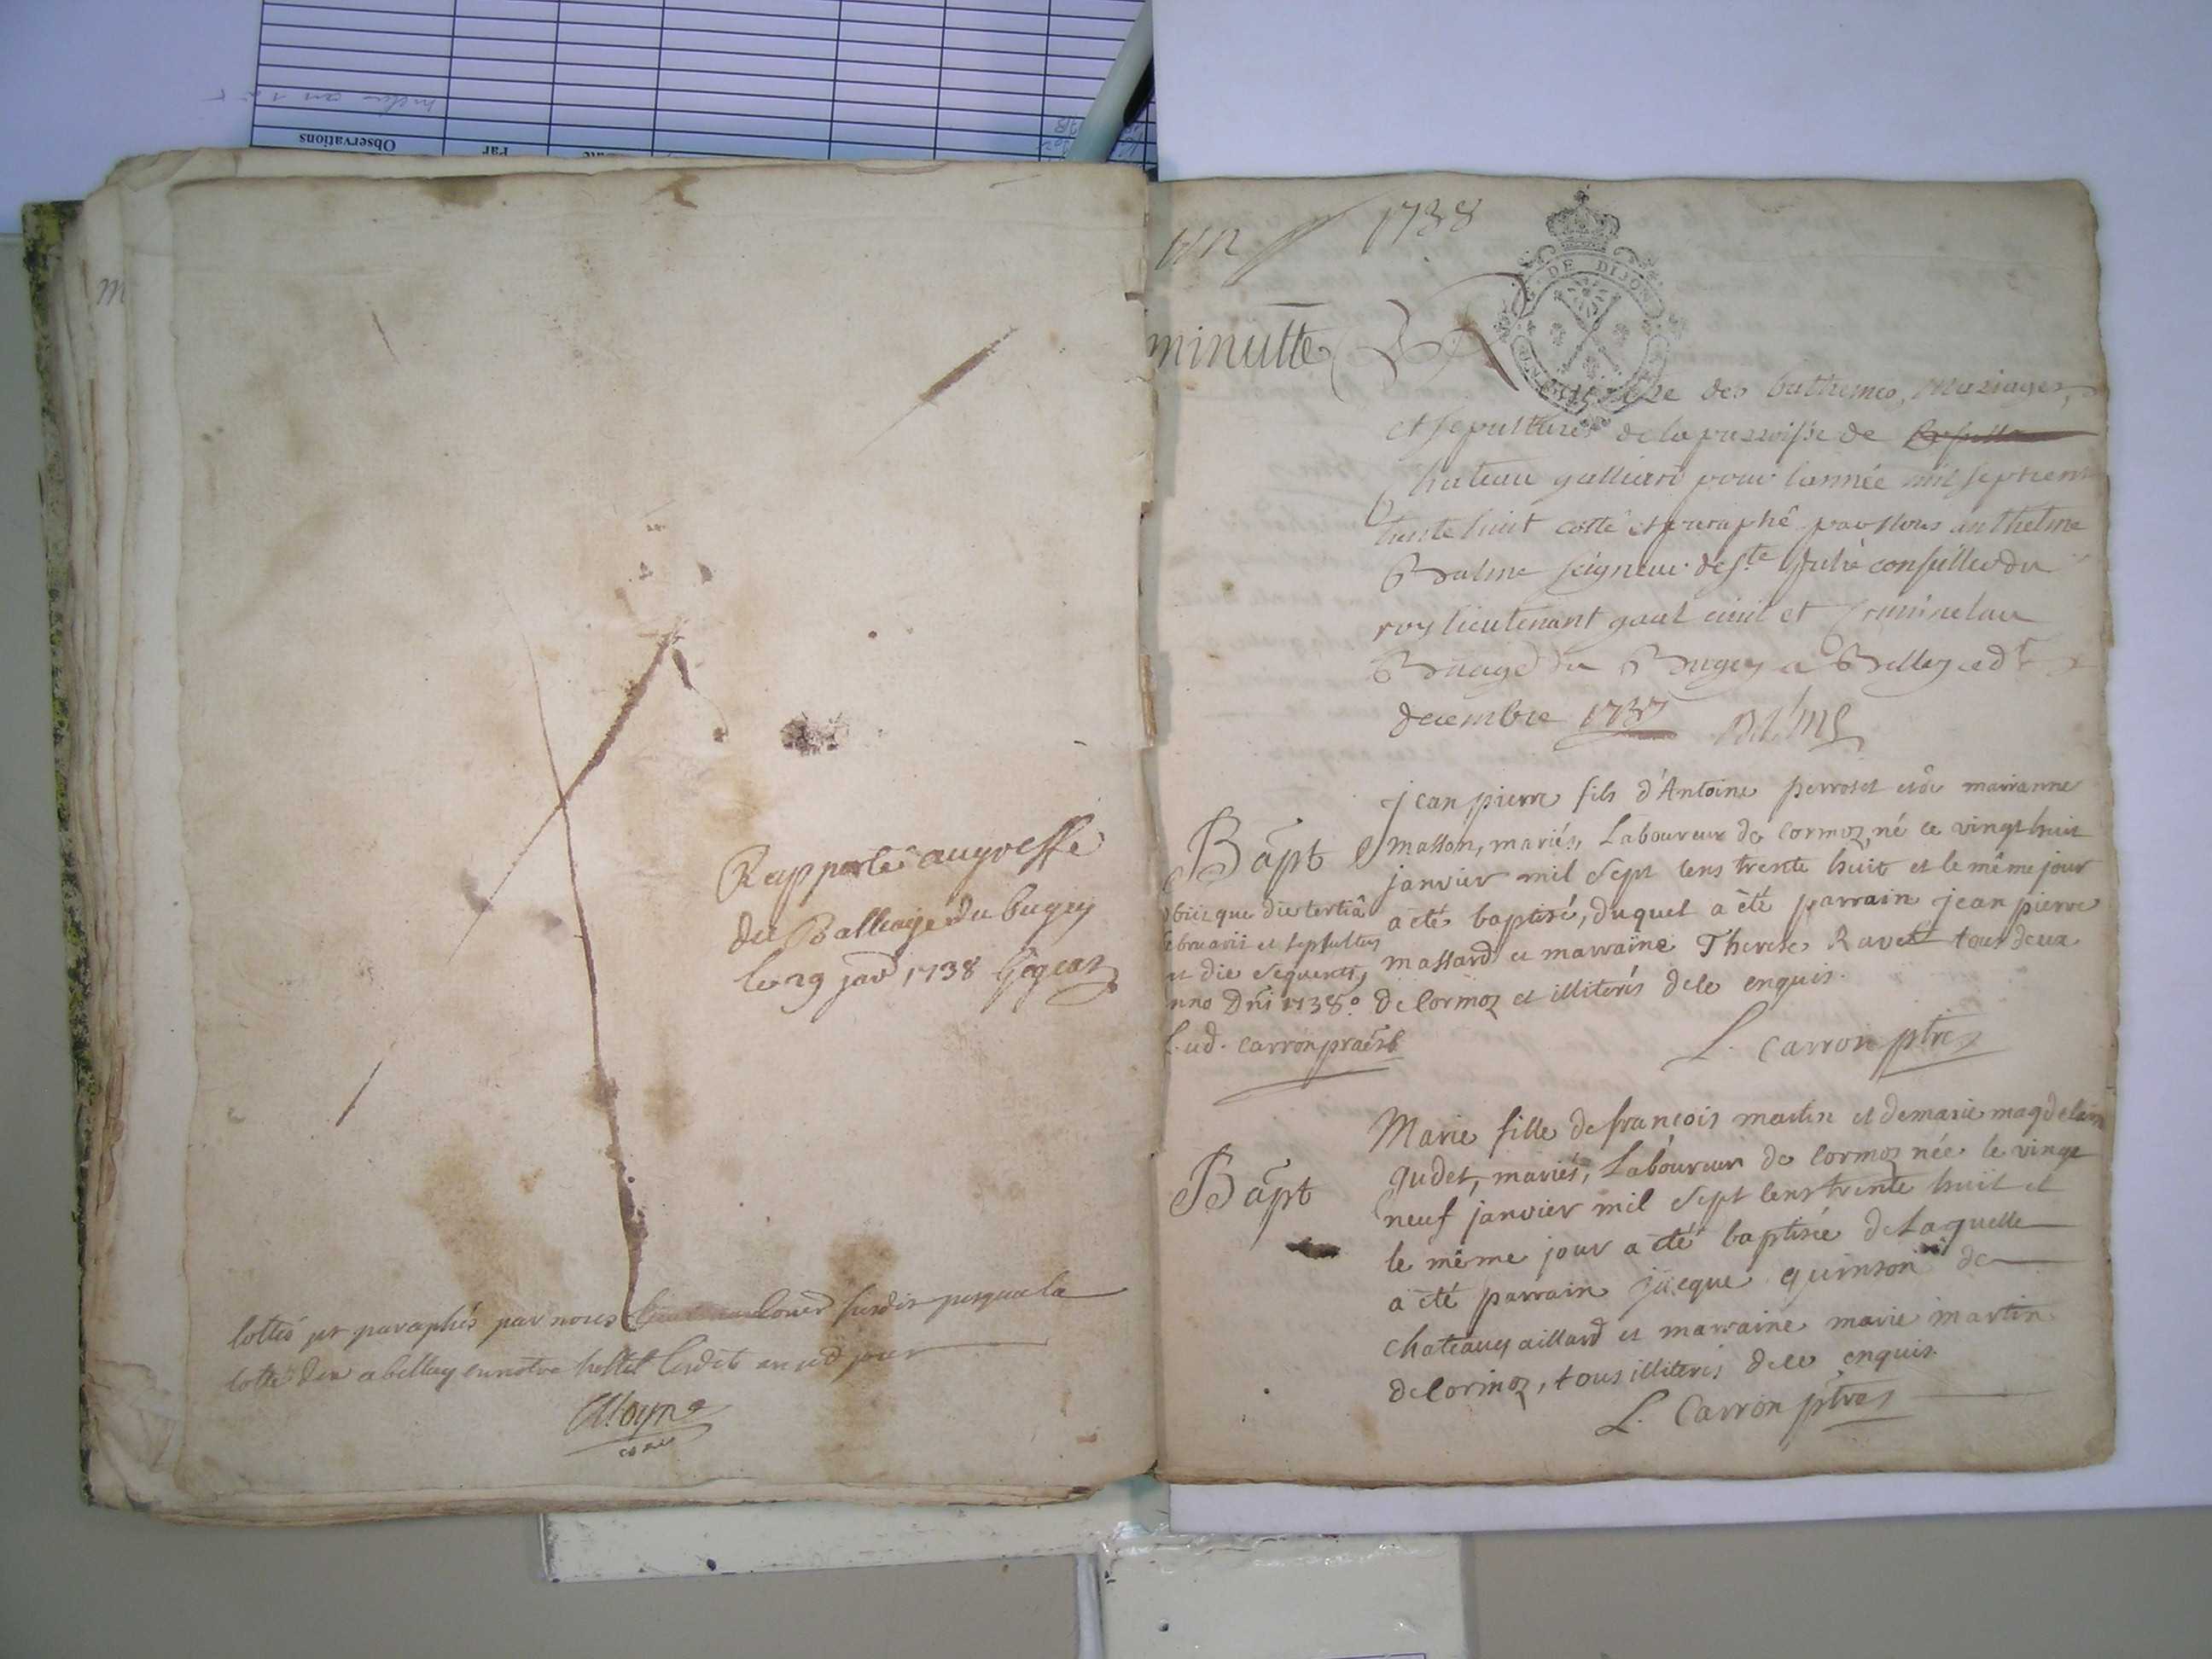 Observations
Par
Rapporté augreffe
du Balliage du bugey
le 29 janv 1738
cottés par nous
cotte dix a bellay en notre hostel lesdits an et jour
un 1738
minutte
DE DIJON
Registre des bathemes, mariages,
et sepultures de la parroisse de
Chateau galliard pour l'année mil sept cent
trente huit cotté et paraphé par nous anthelme
Balme seigneur de ste Julie conseiller du
roy lieutenant gnal civil et Criminel au
Balliage du Bugey a Belley ce
decembre 1737 Balme
jean pierre fils d'Antoine perroset et de marianne
Bapt masson, mariés, Laboureur de Cormoz, né ce vingt huit
janvier mil sept cens trente huit et le même jour
a été baptisé, duquel a été parrain jean pierre
massard et marraine Therese Ravet tous deux
de Cormoz et illiterés de ce enquis.
obiit que die tertiâ
februarii et sepultus
est die sequenti,
anno Dni 1738°
Lud. Carron praesb
L. Carron ptre
Marie fille de françois martin et de marie magdelaine
Bapt Judet, mariés, Laboureur de Cormoz née le vingt
neuf janvier mil sept cens trente huit et
le même jour a été baptisée de Laquelle
a été parrain jacque quinson de
chateaugaillard et marraine marie martin
de Cormoz, tous illiterés de ce enquis.
L. Carron ptre